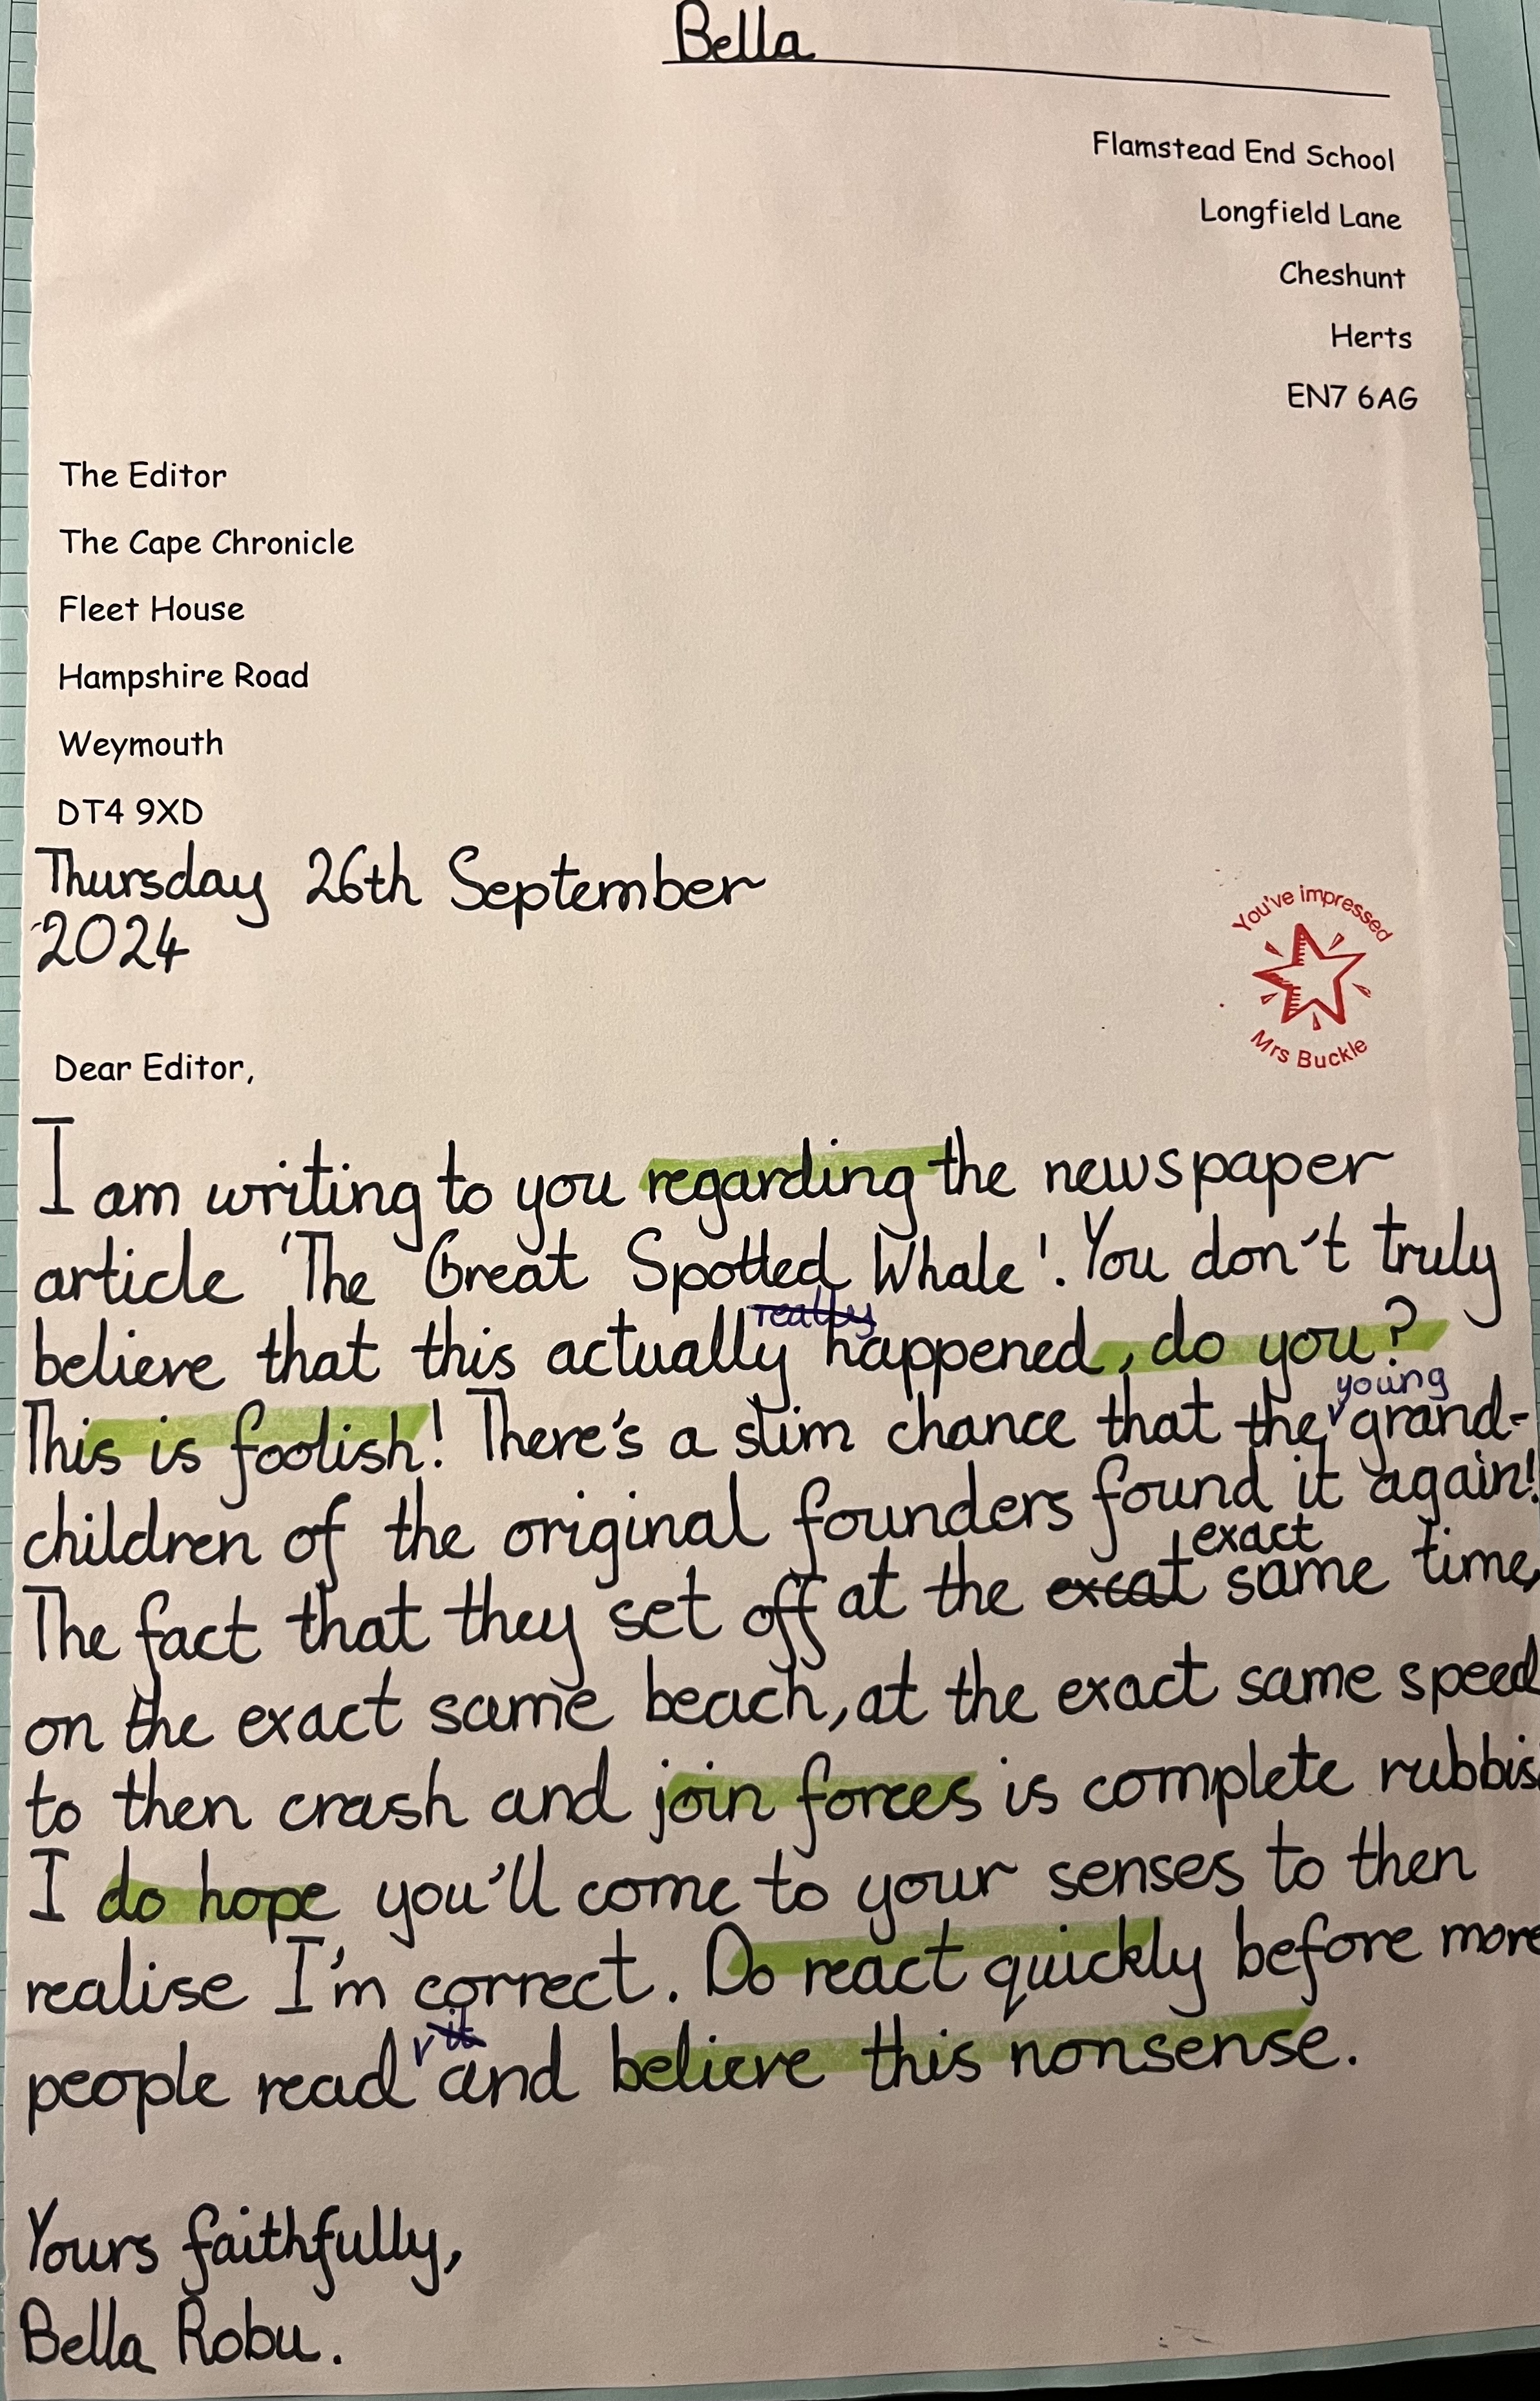 Bella
Flamstead End School
Longfield Lane
Cheshunt
Herts
EN7 6AG
The Editor
The Cape Chronicle
Fleet House
Hampshire Road
Weymouth
DT4 9XD
Thursday 26th September
2024
You've impressed
Mrs Buckle
Dear Editor,
I am writing to you regarding the newspaper
article 'The Great Spotted Whale'. You don't truly
really
believe that this actually happened, do you?
young
This is foolish! There's a slim chance that the grand-
children of the original founders found it again!
exact
The fact that they set off at the excat same time,
on the exact same beach, at the exact same speed
to then crash and join forces is complete rubbis
I do hope you'll come to your senses to then
realise I'm correct. Do react quickly before more
it
people read and believe this nonsense.
Yours faithfully,
Bella Robu.